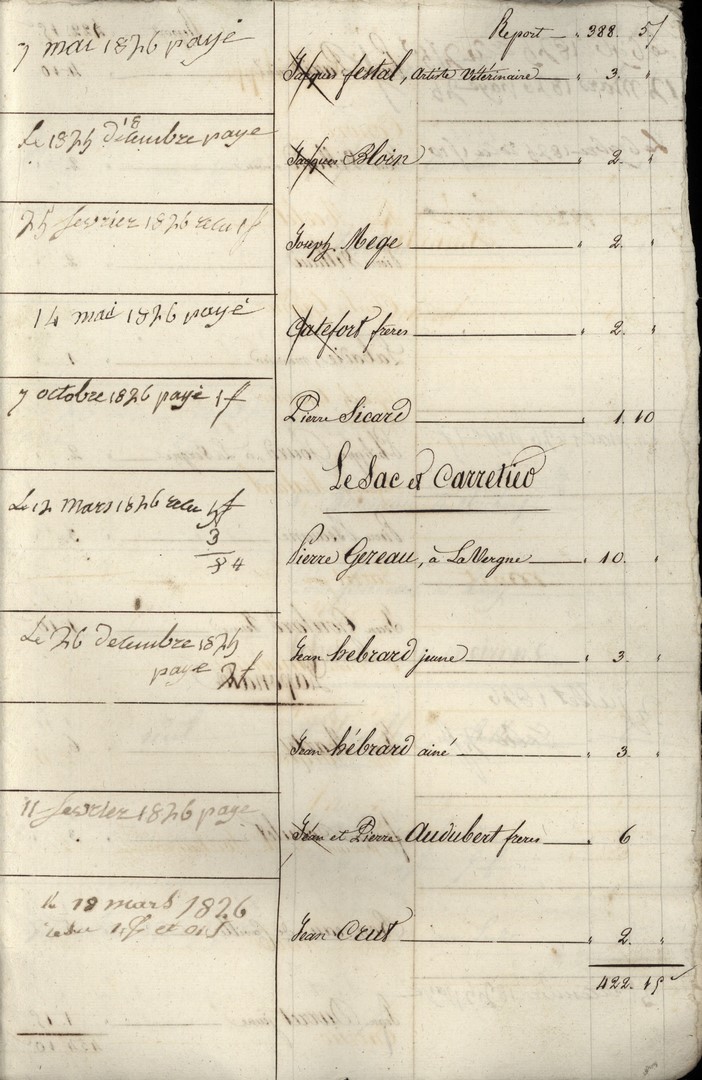 Report 388. 5
7 mai 1826 payé
Jacques festal, Artiste Vétérinaire 3. "
18
Le 1825 décembre paye
Jacques Bloin " 2. "
25 fevrier 1826 recu 1f
Joseph Mege " 2. "
14 mai 1826 payé
Catefort freres " 2. "
7 octobre 1826 payé 1f
Pierre Sicard " 1. 10
Le Sac et Carretieo
Le 12 mars 1826 recu 5f
3
84
Pierre Gezeau, à La Vergne " 10. "
Le 26 decembre 1825
paye 2f
Jean hebrard jeune " 3. "
Jean hébrard ainé " 3. "
11 fevrier 1826 paye
Jean et Pierre Audubert freres " 6
18 mars 1826
1f et
Jean Crut " 2. "
422. 15